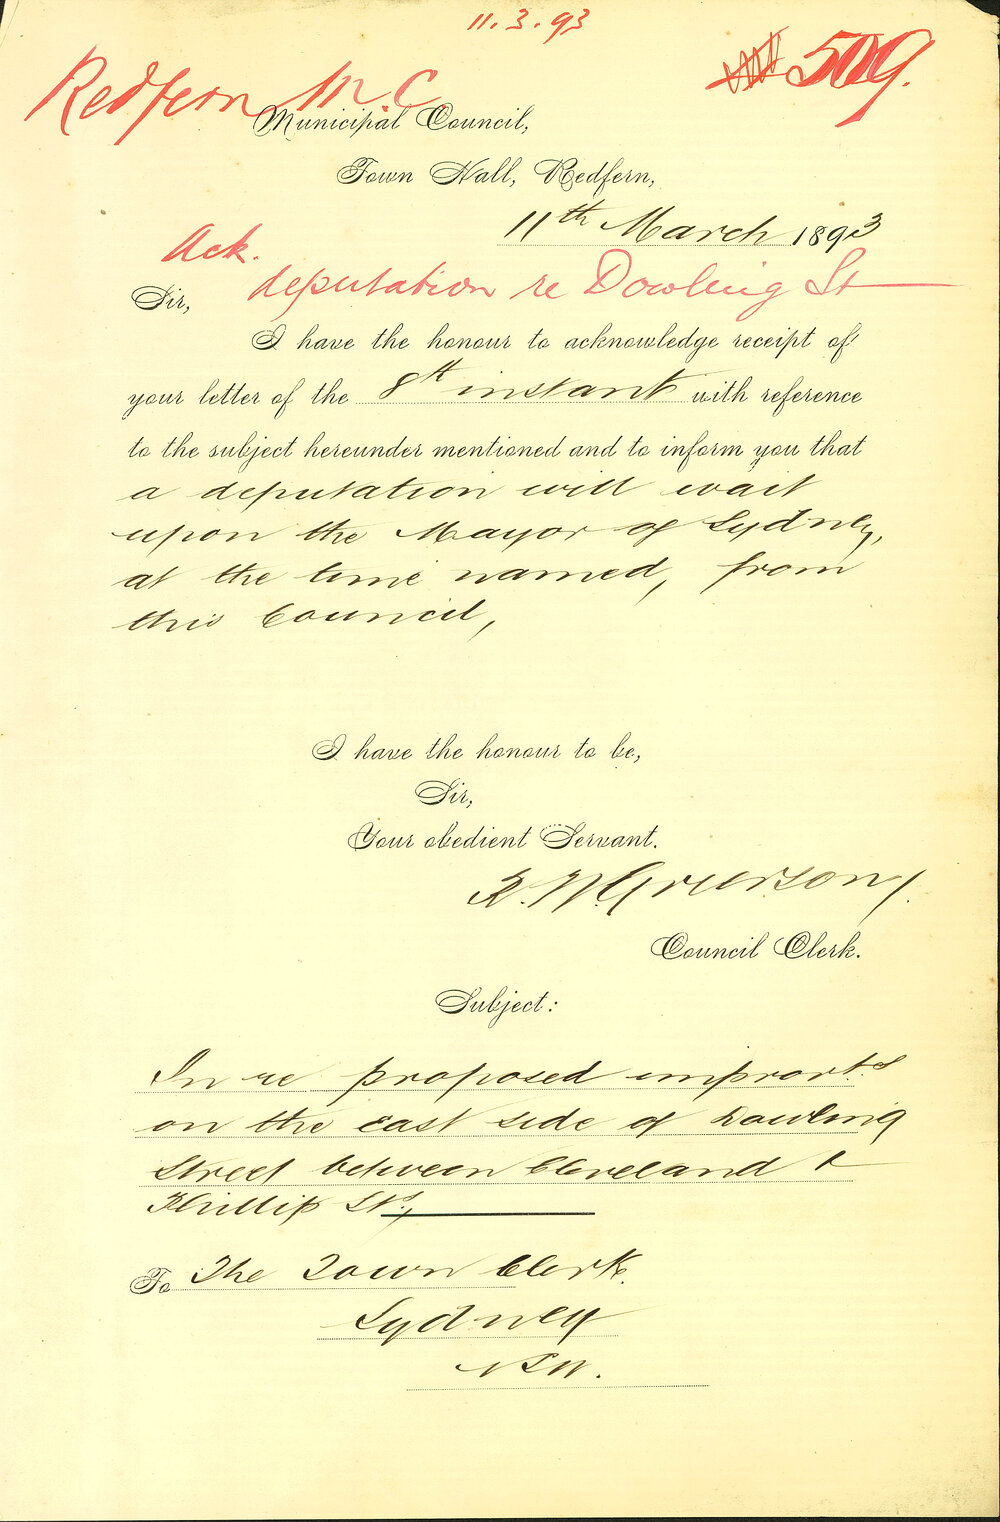 11.3.93
509.
Redfern M.C
Municipal Council,
Town Hall, Redfern,
11th March 1893
Ack.
deputation re Dowling St
Sir,
I have the honour to acknowledge receipt of
your letter of the 8th instant with reference
to the subject hereunder mentioned and to inform you that
a deputation will wait
upon the Mayor of Sydney,
at the time named, from
this Council,
I have the honour to be,
Sir,
Your obedient Servant.
Council Clerk.
Subject:
In re proposed improvts
on the east side of Dowling
Street between Cleveland &
Phillip Sts,
To The Town Clerk.
Sydney
NSW.